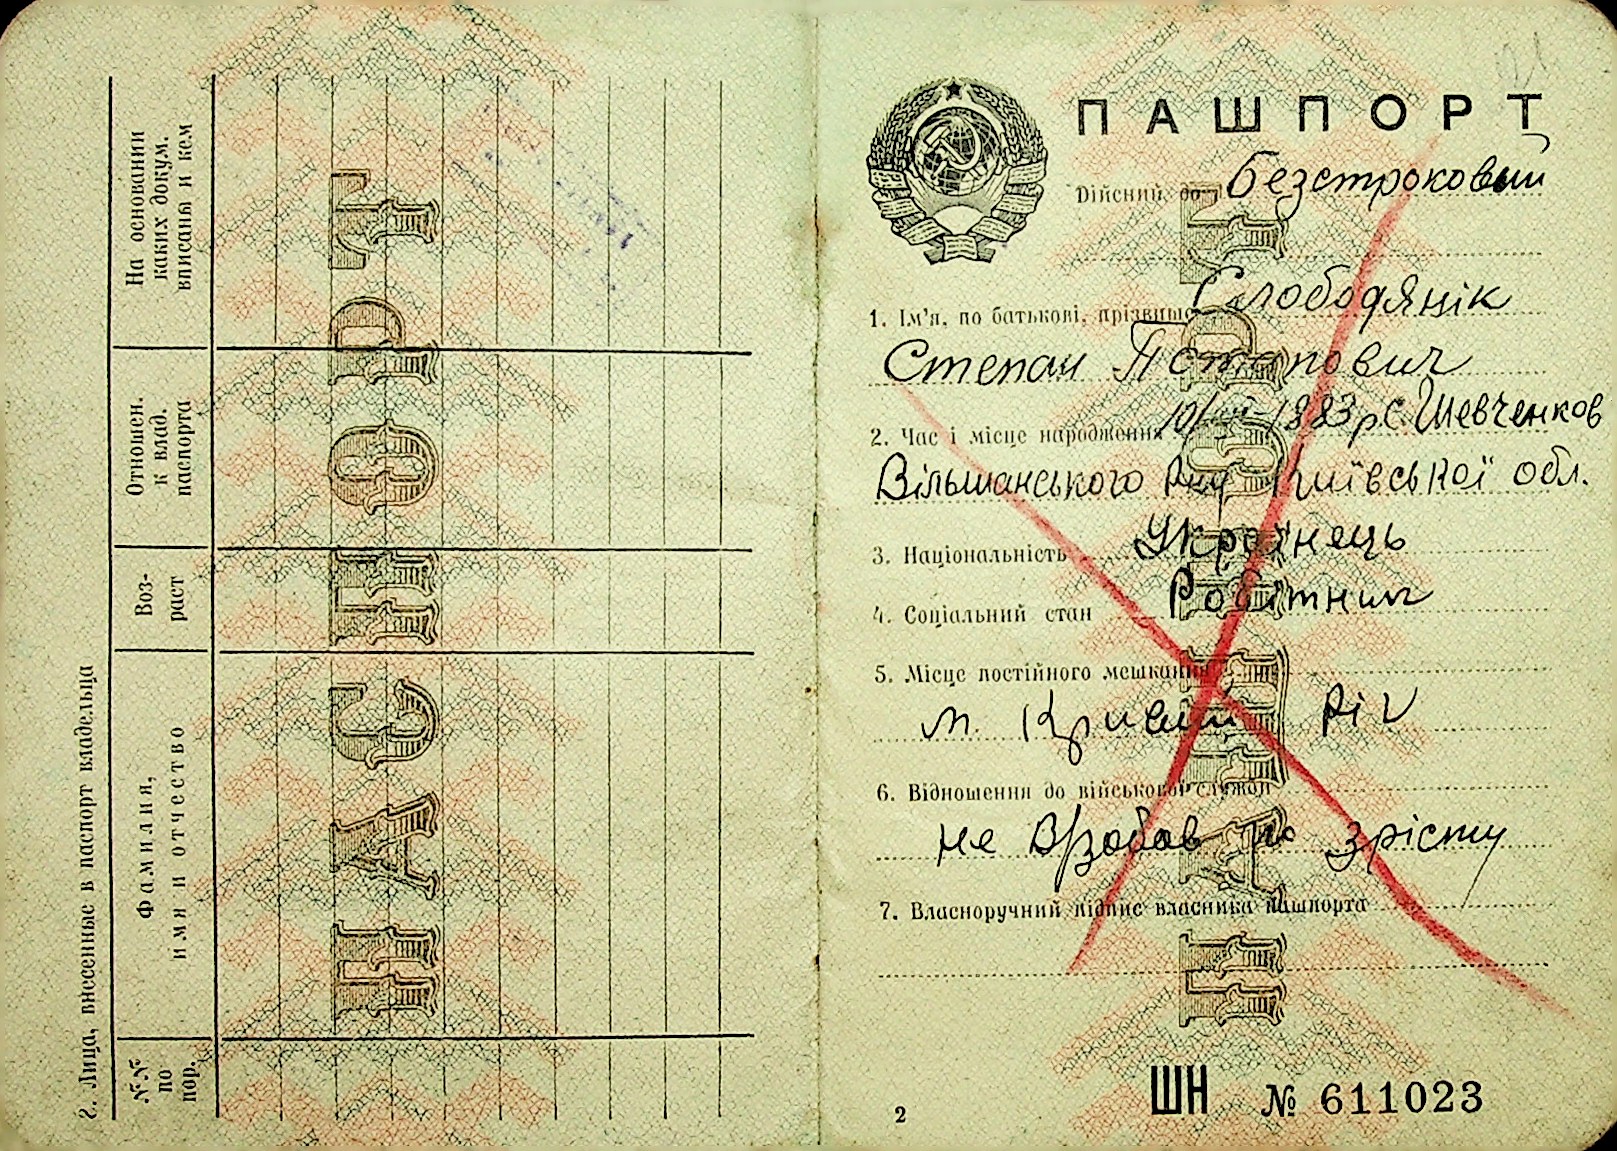 На основании
каких докум.
вписаны и кем
Отношен.
к влад.
паспорта
Воз-
раст
Фамилия,
имя и отчество
№№
по
пор.
2. Лица, внесенные в паспорт владельца
ПАСПОРТ
ПАШПОРТ
Дійсний до Безстроковий
1. Ім'я, по батькові, прізвище Слободяник
Степан Потапович
2. Час і місце народження 1883 р. с. Шевченков
Вільшанського р-ну Київської обл.
3. Національність Українець
4. Соціальний стан Робітник
5. Місце постійного мешкання
м. Кривий Ріг
6. Відношення до військової служби
не по зрісту
7. Власноручний підпис власника пашпорта
ПАСПОРТ
2
ШН № 611023